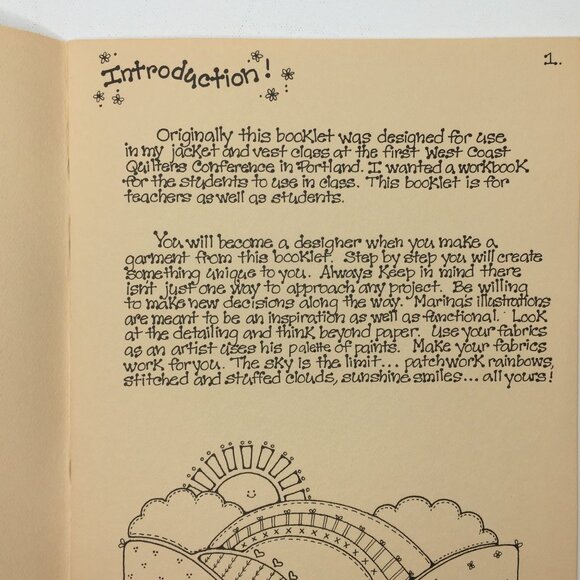 Introduction!
1.
Originally this booklet was designed for use
in my jacket and vest class at the first West Coast
Quilters Conference in Portland. I wanted a workbook
for the students to use in class. This booklet is for
teachers as well as students.
You will become a designer when you make a
garment from this booklet. Step by step you will create
something unique to you. Always keep in mind there
isnt just one way to approach any project. Be willing
to make new decisions along the way. Marina's illustrations
are meant to be an inspiration as well as functional. Look
at the detailing and think beyond paper. Use your fabrics
as an artist uses his palette of paints. Make your fabrics
work for you. The sky is the limit... patchwork rainbows,
stitched and stuffed clouds, sunshine smiles... all yours!